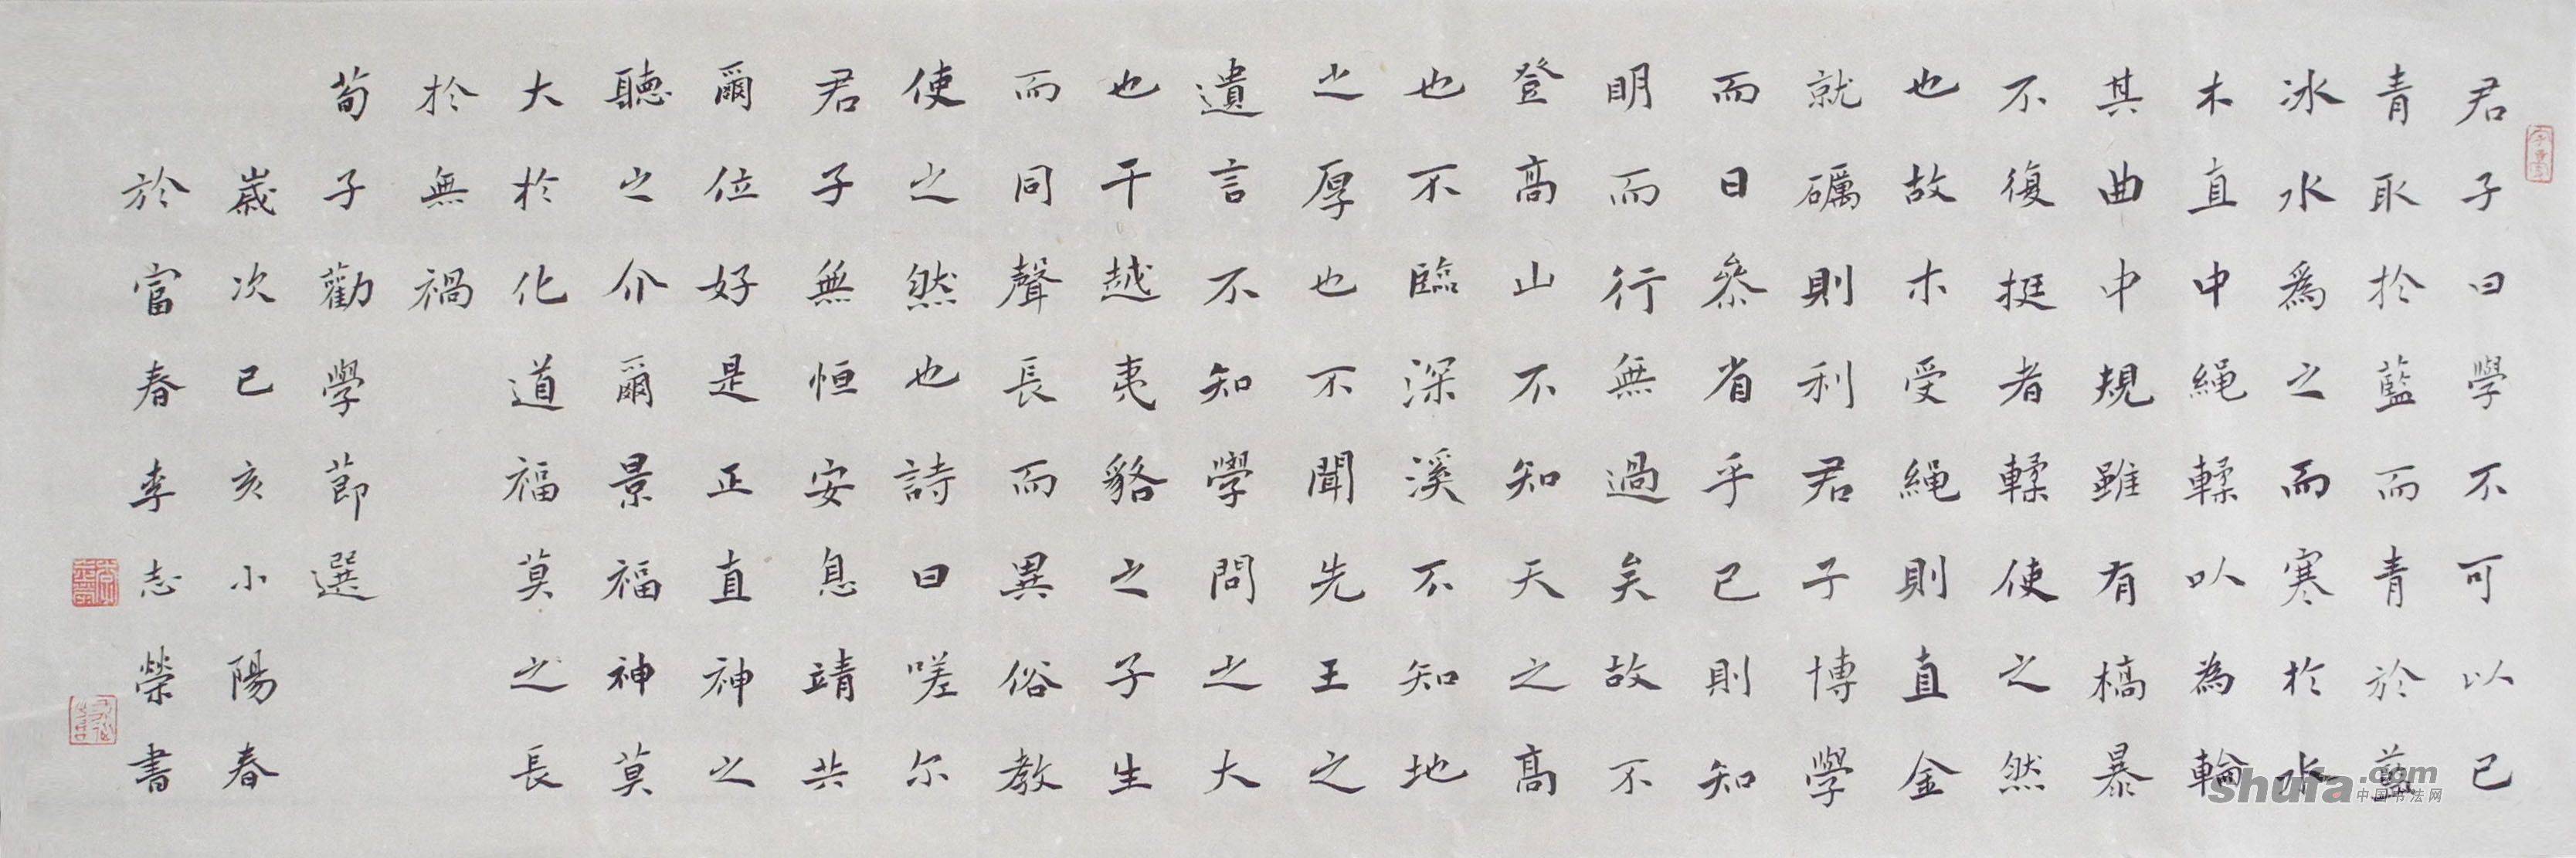 君子曰學不可以已
青取於藍而青於藍
冰水為之而寒於水
木直中繩輮以為輪
其曲中規雖有槁暴
不復挺者輮使之然
也故木受繩則直金
就礪則利君子博學
而日參省乎已則知
明而行無過矣故不
登高山不知天之高
也不臨深溪不知地
之厚也不聞先王之
遺言不知學問之大
也干越夷貉之子生
而同聲長而異俗教
使之然也詩曰嗟尔
君子無恒安息靖共
爾位好是正直神之
聽之介爾景福神莫
大於化道福莫之長
於無禍
荀子勸學節選
歲次己亥小陽春
於富春李志榮書
shufa.com
中国书法网